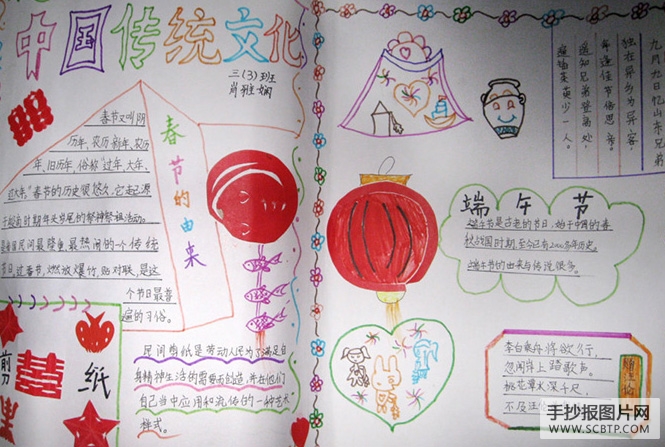 中国传统文化
三(3)班
春节的由来
春节又叫阴
历年、农历新年、农历
年、旧历年,俗称"过年、大年、
过大年,"春节的历史很悠久,它起源
于殷商时期年头岁尾的祭神祭祖活动。
是我国民间最隆重、最热闹的一个传统
节日,过春节,燃放爆竹,贴对联,是这
个节日最普
遍的习俗。
剪
囍
纸
民间剪纸是劳动人民为了满足自
身精神生活的需要而创造,并在他们
自己当中应用和流传的一种艺术
样式。
九月九日忆山东兄弟
独在异乡为异客,
每逢佳节倍思亲。
遥知兄弟登高处,
遍插茱萸少一人。
端午节
端午节是古老的节日,始于中国的春
秋战国时期,至今已有2000多年历史。
端午节的由来与传说很多。
李白乘舟将欲行,
忽闻岸上踏歌声。
桃花潭水深千尺,
不及汪伦
手抄报图片网
WWW.SCBTP.COM